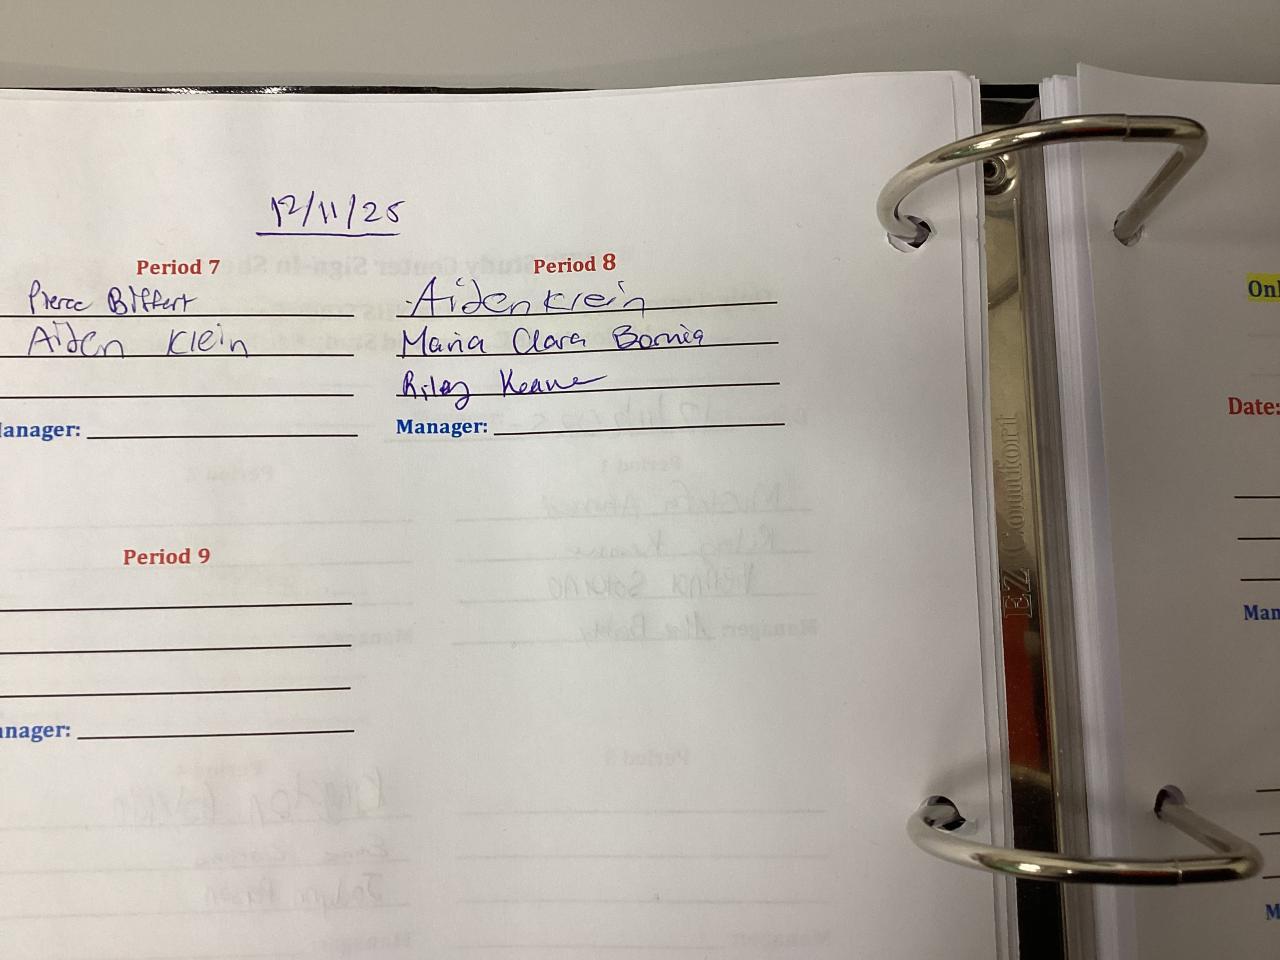 12/11/25
Period 7
Pierce Biffert
Aiden Klein
Manager:
Period 8
Aiden Klein
Maria Clara Bornia
Riley Keane
Manager:
Period 9
anager:
EZ Comfort
Onl
Date:
Man
M